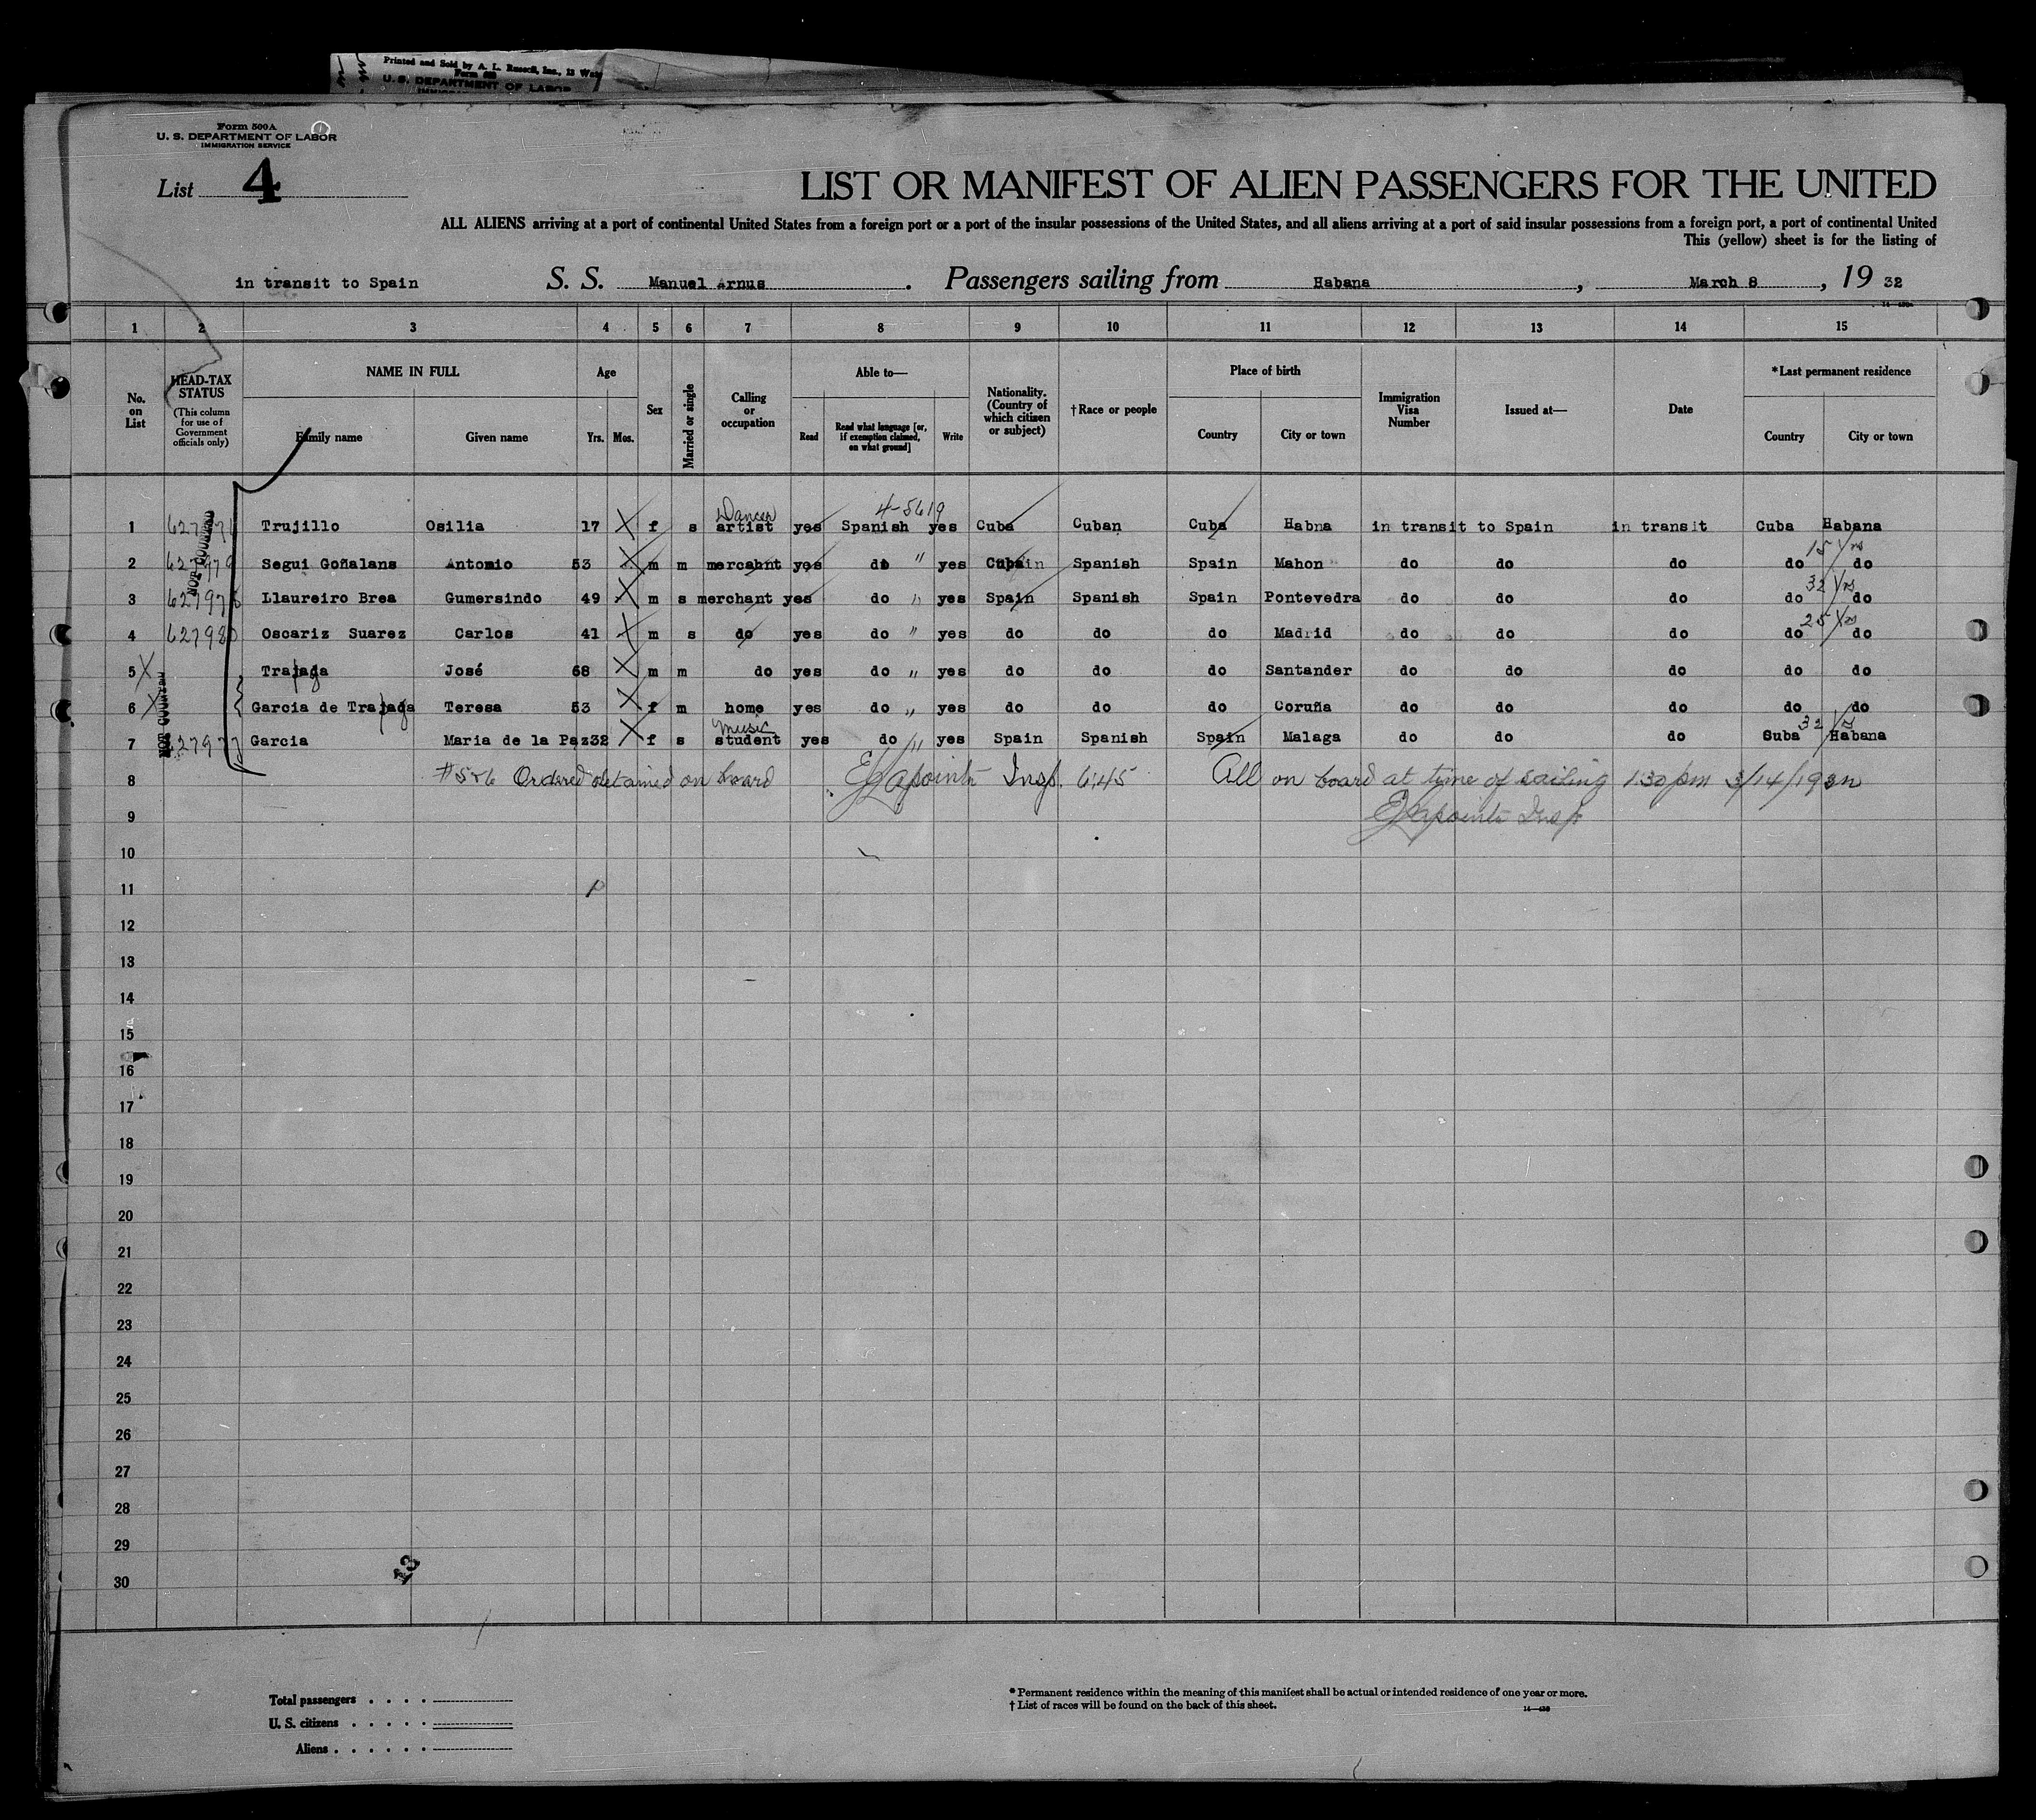 Printed and Sold by A. L. Russell, Inc., 13
Form
U. S. DEPARTMENT OF LABOR
Form 500A
U. S. DEPARTMENT OF LABOR
IMMIGRATION SERVICE
List 4
LIST OR MANIFEST OF ALIEN PASSENGERS FOR THE UNITED
ALL ALIENS arriving at a port of continental United States from a foreign port or a port of the insular possessions of the United States, and all aliens arriving at a port of said insular possessions from a foreign port, a port of continental United
This (yellow) sheet is for the listing of
in transit to Spain S. S. Manuel Arnus. Passengers sailing from Habana, March 8, 19 32
1 2 3 4 5 6 7 8 9 10 11 12 13 14 15
No. on List
HEAD-TAX STATUS (This column for use of Government officials only)
NAME IN FULL Family name Given name
Age Yrs. Mos.
Sex
Married or single
Calling or occupation
Able to— Read Read what language [or, if exemption claimed, on what ground] Write
Nationality. (Country of which citizen or subject)
† Race or people
Place of birth Country City or town
Immigration Visa Number
Issued at—
Date
* Last permanent residence Country City or town
4-5619
Dancer
1 Trujillo Osilia 17 X f s artist yes Spanish yes Cuba Cuban Cuba Habna in transit to Spain in transit Cuba Habana
15 yrs
2 Segui Goñalans Antonio 53 X m m mercahnt yes do " yes Spain Spanish Spain Mahon do do do do do
32 yrs
3 Llaureiro Brea Gumersindo 49 X m s merchant yes do " yes Spain Spanish Spain Pontevedra do do do do do
25 yrs
4 627980 Oscariz Suarez Carlos 41 X m s do yes do " yes do do do Madrid do do do do do
5 X Trajaga José 68 X m m do yes do " yes do do do Santander do do do do do
6 X Garcia de Trajaga Teresa 53 X f m home yes do " yes do do do Coruña do do do do do
music 32 yrs
7 627977 Garcia Maria de la Paz 32 X f s student yes do " yes Spain Spanish Spain Malaga do do do Cuba Habana
NOT COUNTED
NOT COUNTED
8 #5&6 Ordered detained on board EJLapointe Insp. 6:45 All on board at time of sailing 1:30 pm 3/14/1932
9 EJLapointe Insp
10
11
12
13
14
15
16
17
18
19
20
21
22
23
24
25
26
27
28
29
30
13
Total passengers . . . .
U. S. citizens . . . . .
Aliens . . . . . .
* Permanent residence within the meaning of this manifest shall be actual or intended residence of one year or more.
† List of races will be found on the back of this sheet.